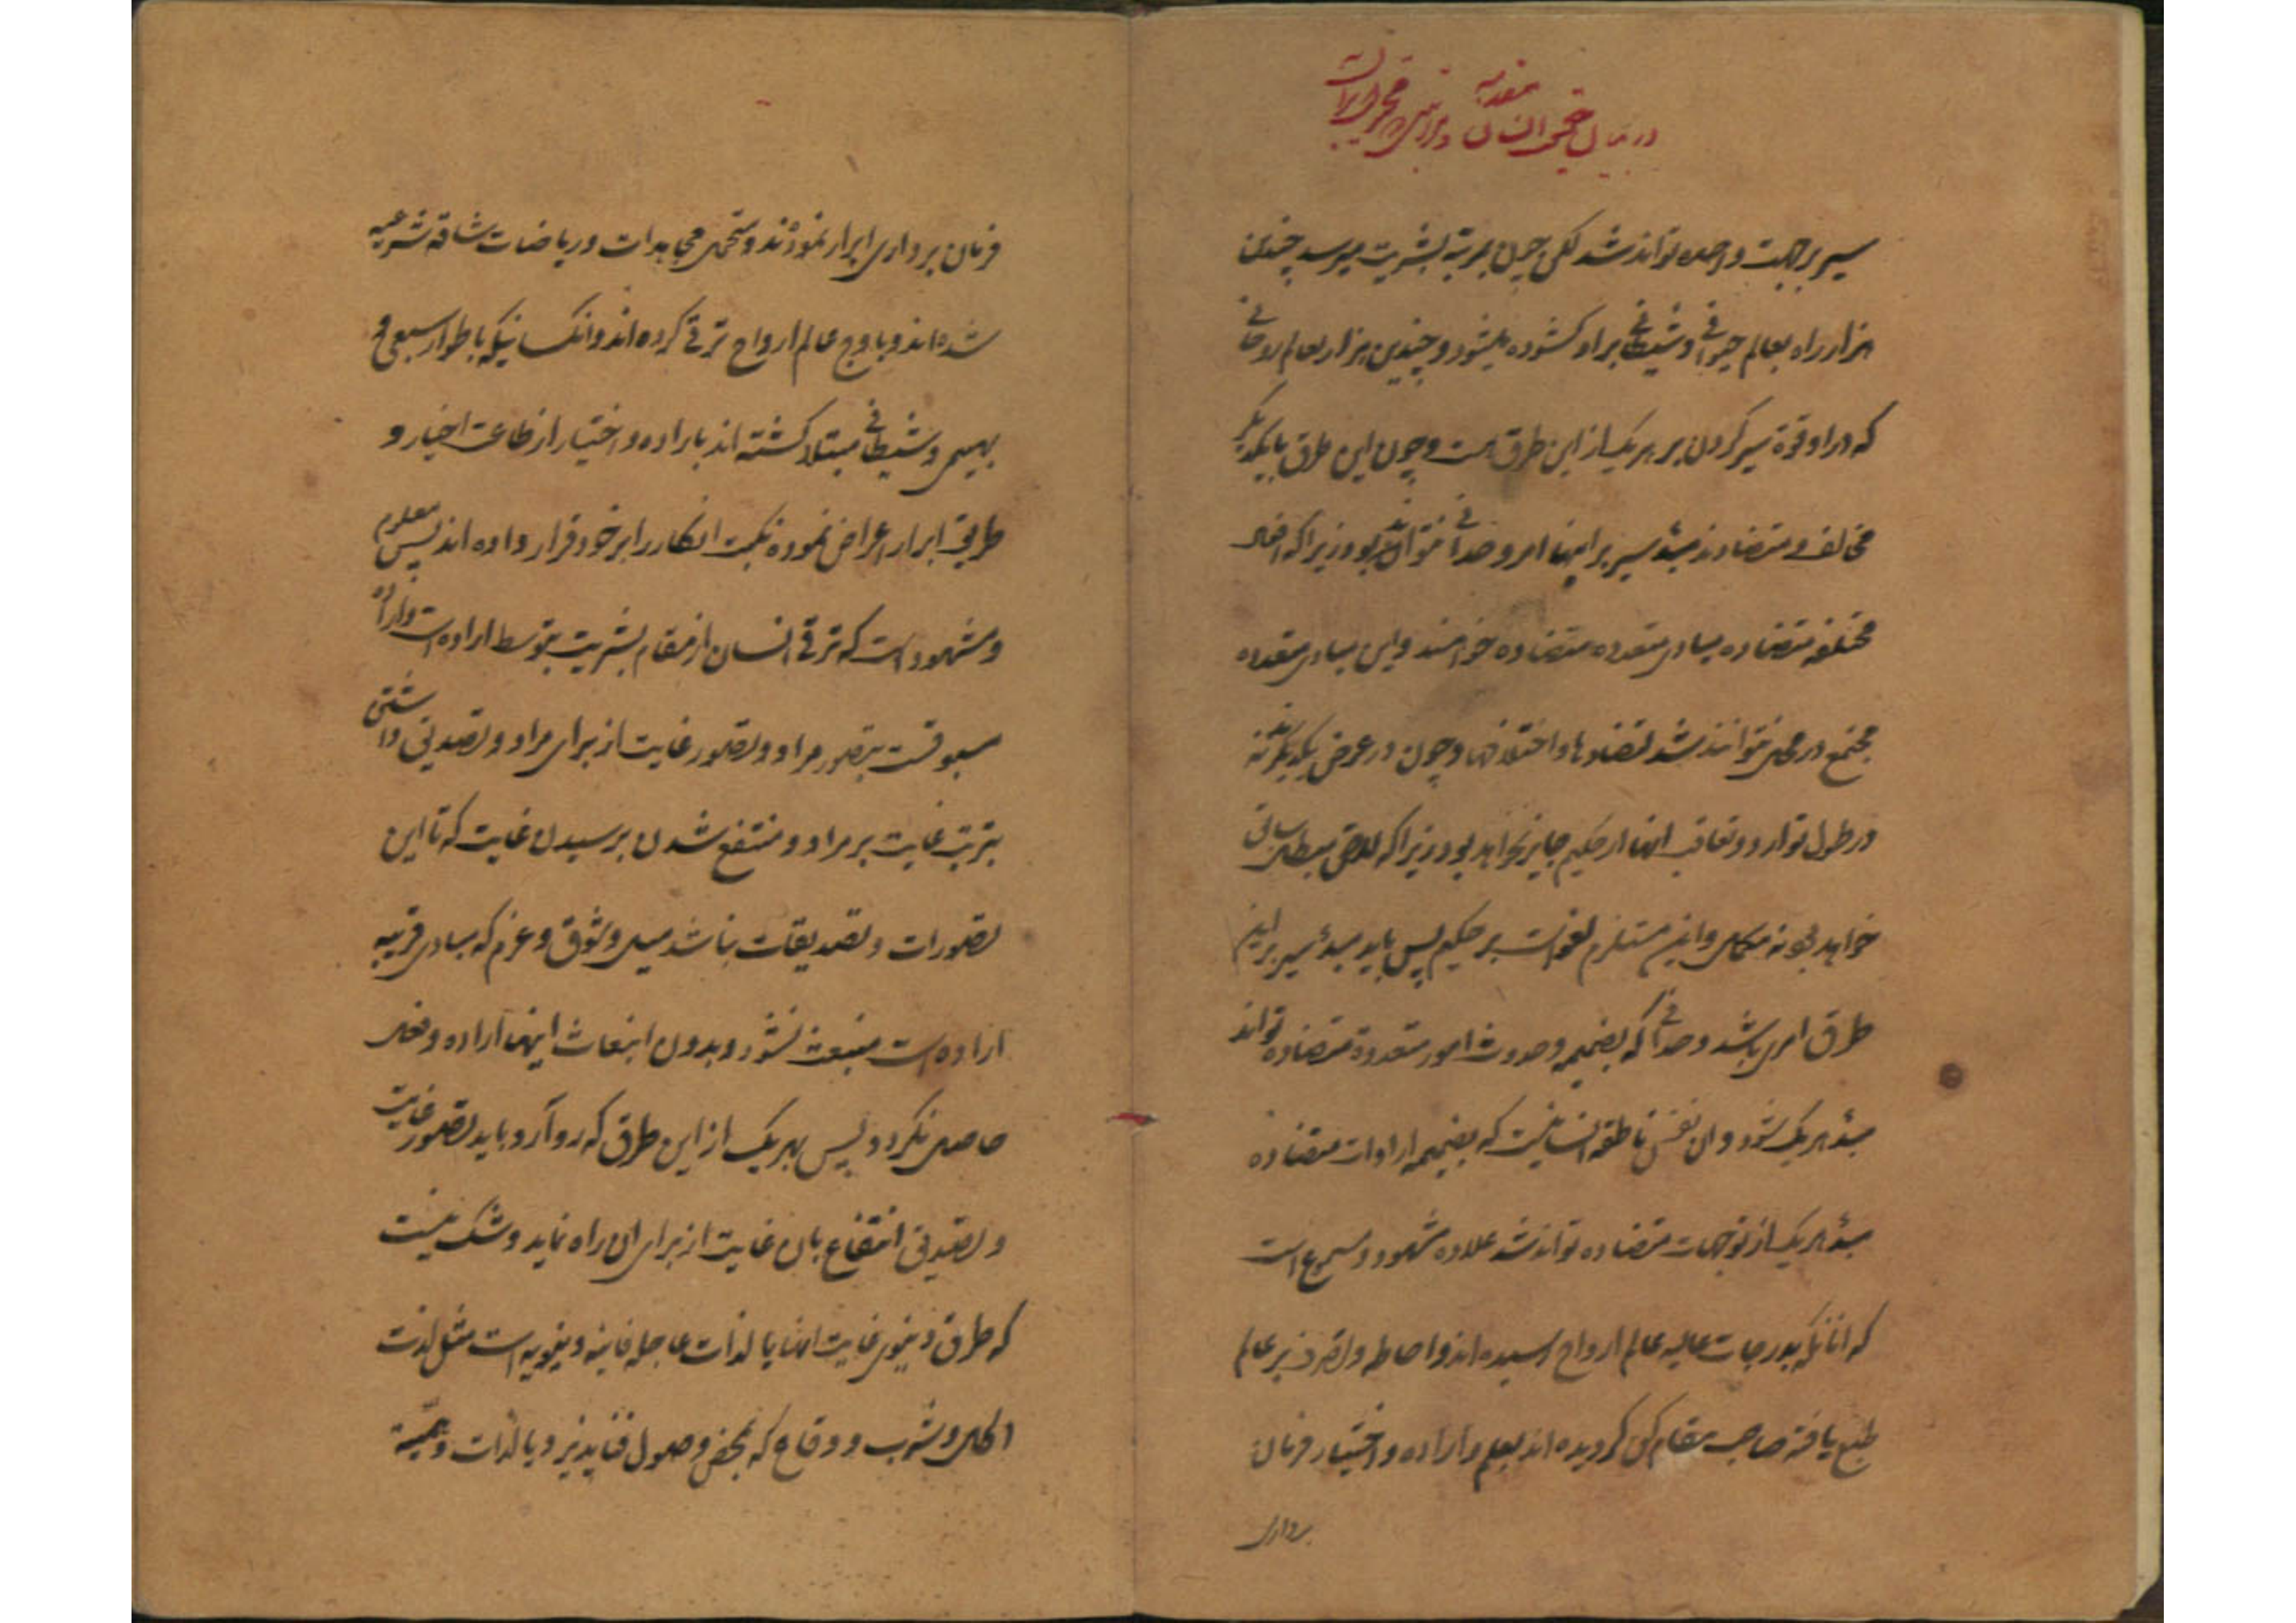 مقدمه
در بیان حقیقت انسان و
سیر بر جهت واحده تواند شد لکن چون بمرتبه بشریت میرسد چندین
هزار راه بعالم حیوانی و شیطانی بر او کشوده میشود و چندین هزار بعالم روحانی
که در او قوة سیر کردن بر هر یک از این طرق هست و چون این طرق با یکدیگر
مخالف و متضادند مبدء سیر بر اینها امر وحدانی نتواند بود زیرا که افعال
مختلفه متضاده مبادی متعدده متضاده خواهند و این مبادی متعدده
مجتمع در محل نتوانند شد لتضادها و اختلافها و چون در عرض یکدیگر نتوانند
در طول توارد و تعاقب انها از حکیم جایز نخواهد بود زیرا که لاحق مبطل سابق
خواهد بود نه مکمل و این مستلزم لغو است بر حکیم پس باید مبدء سیر بر این
طرق امری باشد وحدانی که بضمیمه وحدوث امور متعددة متضاده تواند
مبدء هر یک شود و ان نفس ناطقه انسانیست که بضمیمه ارادات متضاده
مبدء هر یک از توجهات متضاده تواند شد علاوه مشهود و مسموع است
که انانکه بدرجات عالیه عالم ارواح رسیده اند و احاطه و تصرف بر عالم
طبع یافته صاحب مقام کن کردیده اند بعلم و اراده و اختیار فرمان
برداری
فرمان برداری ابرار نموده‌اند و متحمل مجاهدات و ریاضات شاقه شرعیه
شده اند و باوج عالم ارواح ترقی کرده اند و انکسانیکه باطوار سبعی و
بهیمی و شیطانی مبتلا کشته اند باراده و اختیار از طاعت اخیار و
طریق ابرار اعراض نموده نکبت انکار را بر خود قرار داده اند پس معلوم
و مشهود است که ترقی انسان از مقام بشریت بتوسط اراده است و اراده
مسبوقست بتصور مراد و تصور غایت از برای مراد و تصدیق داشتن
بترتب غایت بر مراد و منتفع شدن برسیدن غایت که تا این
تصورات و تصدیقات نباشد میل و شوق و عزم که مبادی قریبه
اراده است منبعث نشود و بدون انبعاث اینها اراده و فعل
حاصل نکردد پس بهر یک از این طرق که رو آرد باید تصور غایت
و تصدیق انتفاع بان غایت از برای ان راه نماید و شک نیست
که طرق دنیوی غایت انها یا لذات عاجله فانیه دنیویه است مثل لذت
اکل و شرب و وقاع که بمحض وصول فنا پذیرد یا لذات وهمیة